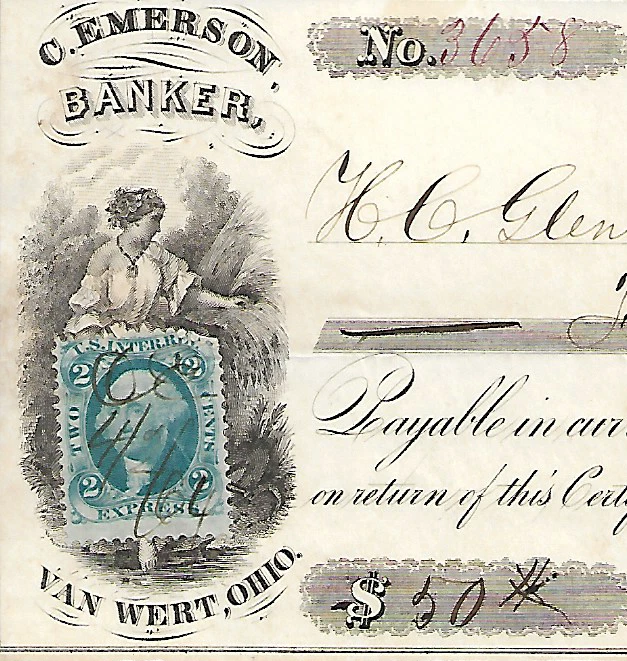 C. EMERSON,
BANKER,
No. 3658
H. C. Glen
U.S. INTER. REV.
2 2
TWO CENTS
2 2
EXPRESS
C E
64
Payable in cur
on return of this Certi
VAN WERT, OHIO.
$ 50